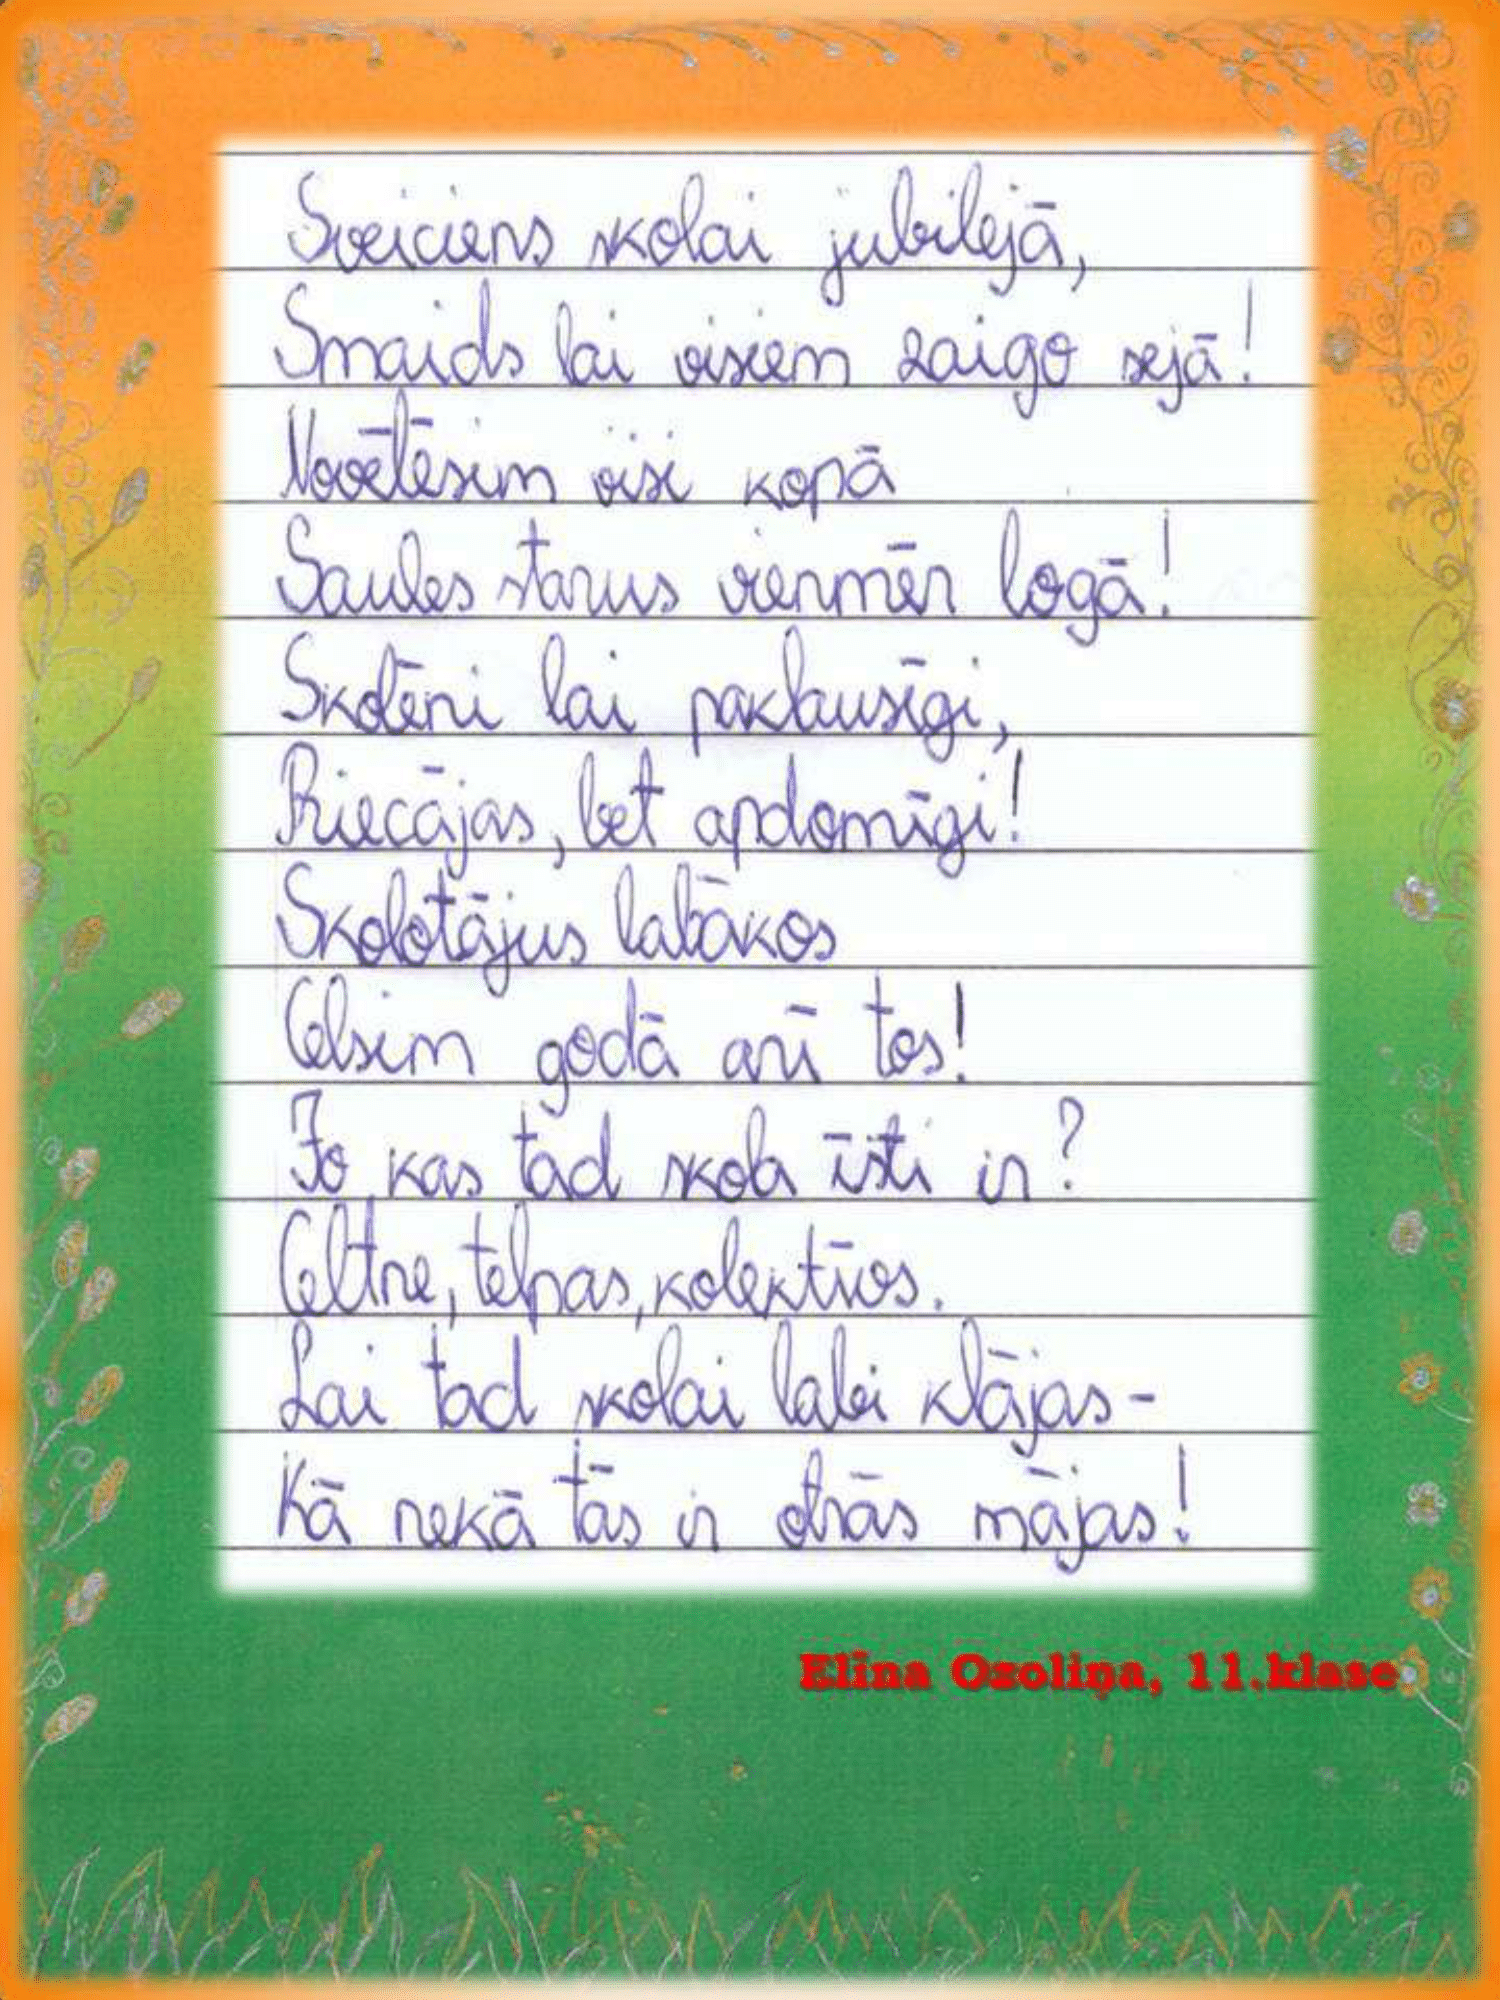 Sveiciens skolai jubilejā,
Smaids lai visiem zaigo sejā!
Novēlēsim visi kopā
Saules starus vienmēr logā!
Skolēni lai paklausīgi,
Riecājas, bet apdomīgi!
Skolotājus labākos
Celsim godā arī tos!
Jo kas tad skola īsti ir?
Celtne, telpas, kolektīvs.
Lai tad skolai labi klājas-
Kā nekā tās ir otrās mājas!
Elīna Ozoliņa, 11.klase